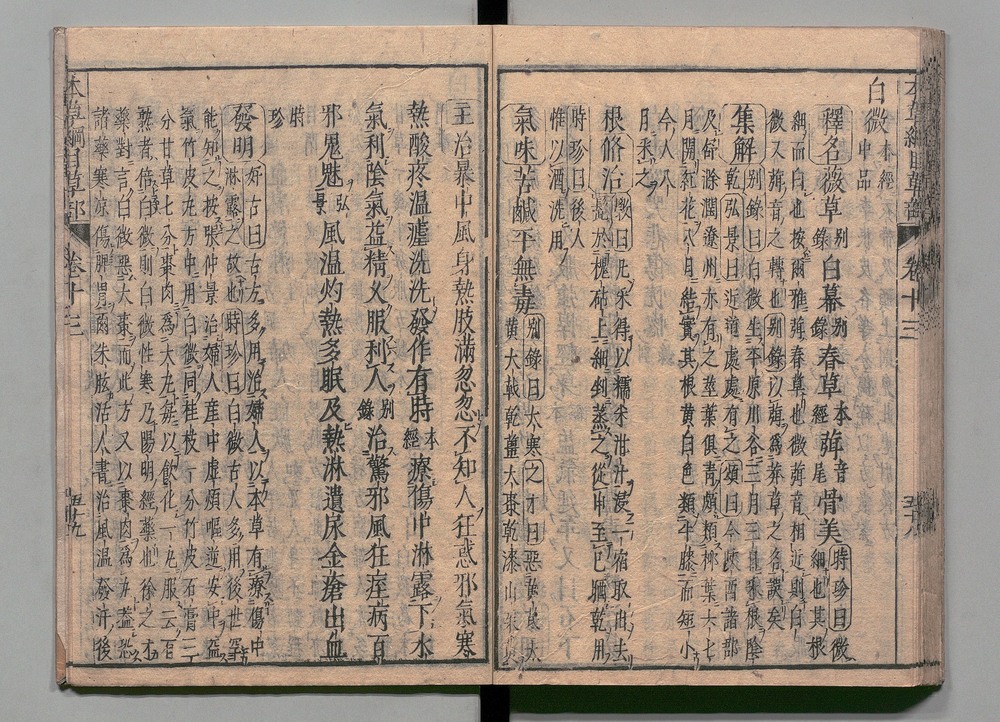 本草綱目草部 卷十三 五十八
白微 本經中品
釋名 薇草 別錄 白幕 別錄 春草 本經 葞 音尾 骨美 時珍曰微細也其根
細而白也按爾雅葞春草也微葞音相近則白
微又葞音之轉也別錄以葞爲莽草之名誤矣
集解 別錄曰白微生平原川谷三月三日采根陰
乾弘景曰近道處處有之頌曰今陝西諸郡
及舒滁潤遼州亦有之莖葉俱青頗類柳葉六七
月開紅花八月結實其根黃白色類牛膝而短小
今人八
月采之
根 修治 斅曰凡采得以糯米泔汁浸一宿取出去
髭於槐砧上細剉蒸之從申至巳曬乾用
時珍曰後人
惟以酒洗用
氣味 苦鹹平無毒 別錄曰大寒之才曰惡黃芪大
黃大戟乾薑大棗乾漆山
主治暴中風身熱肢滿忽忽不知人狂惑邪氣寒
熱酸疼溫瘧洗洗發作有時 本經 療傷中淋露下水
氣利陰氣益精久服利人 別錄 治驚邪風狂痓病百
邪鬼魅 弘景 風溫灼熱多眠及熱淋遺尿金瘡出血
時珍
發明 好古曰古方多用治婦人以本草有療傷中
淋露之故也時珍曰白微古人多用後世罕
能知之按張仲景治婦人產中虛煩嘔逆安中益
氣竹皮丸方中用白微同桂枝一分竹皮石膏三
分甘草七分棗肉爲大丸每以飲化一丸服云有
熱者倍白微則白微性寒乃陽明經藥也徐之才
藥對言白微惡大棗而此方又以棗肉爲丸蓋恐
諸藥寒涼傷脾胃爾朱肱活人書治風溫發汗後
本草綱目草部 卷十三 五十九